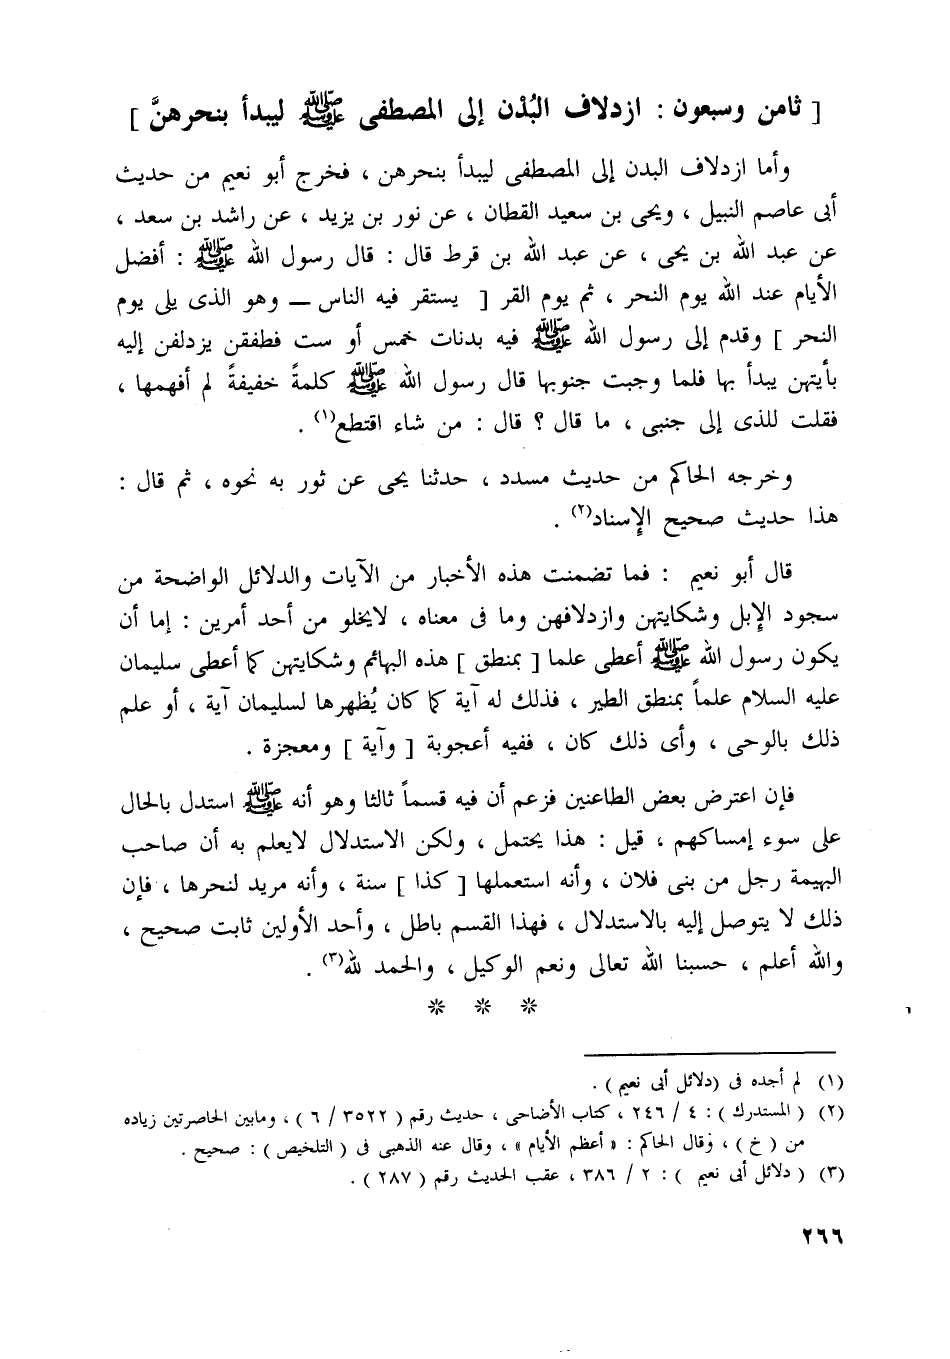 [ ثامن وسبعون : ازدلاف البُدْن إلى المصطفى ﷺ ليبدأ بنحرهنَّ ]
وأما ازدلاف البدن إلى المصطفى ليبدأ بنحرهن ، فخرج أبو نعيم من حديث
أبى عاصم النبيل ، ويحى بن سعيد القطان ، عن نور بن يزيد ، عن راشد بن سعد ،
عن عبد الله بن يحى ، عن عبد الله بن قرط قال : قال رسول الله ﷺ : أفضل
الأيام عند الله يوم النحر ، ثم يوم القر [ يستقر فيه الناس — وهو الذى يلى يوم
النحر ] وقدم إلى رسول الله ﷺ فيه بدنات خمس أو ست فطفقن يزدلفن إليه
بأيتهن يبدأ بها فلما وجبت جنوبها قال رسول الله ﷺ كلمةً خفيفةً لم أفهمها ،
فقلت للذى إلى جنبى ، ما قال ؟ قال : من شاء اقتطع(١) .
وخرجه الحاكم من حديث مسدد ، حدثنا يحى عن ثور به نحوه ، ثم قال :
هذا حديث صحيح الإسناد(٢) .
قال أبو نعيم : فما تضمنت هذه الأخبار من الآيات والدلائل الواضحة من
سجود الإبل وشكايتهن وازدلافهن وما فى معناه ، لايخلو من أحد أمرين : إما أن
يكون رسول الله ﷺ أعطى علما [ بمنطق ] هذه البهائم وشكايتهن كما أعطى سليمان
عليه السلام علماً بمنطق الطير ، فذلك له آية كما كان يُظهرها لسليمان آية ، أو علم
ذلك بالوحى ، وأى ذلك كان ، ففيه أعجوبة [ وآية ] ومعجزة .
فإن اعترض بعض الطاعنين فزعم أن فيه قسماً ثالثا وهو أنه ﷺ استدل بالحال
على سوء إمساكهم ، قيل : هذا يحتمل ، ولكن الاستدلال لايعلم به أن صاحب
البهيمة رجل من بنى فلان ، وأنه استعملها [ كذا ] سنة ، وأنه مريد لنحرها ، فإن
ذلك لا يتوصل إليه بالاستدلال ، فهذا القسم باطل ، وأحد الأولين ثابت صحيح ،
والله أعلم ، حسبنا الله تعالى ونعم الوكيل ، والحمد لله(٣) .
❊ ❊ ❊
(١) لم أجده فى (دلائل أبى نعيم) .
(٢) ( المستدرك ) : ٤ / ٢٤٦ ، كتاب الأضاحى ، حديث رقم ( ٣٥٢٢ / ٦ ) ، ومابين الحاصرتين زياده
من ( خ ) ، وقال الحاكم : « أعظم الأيام » ، وقال عنه الذهبى فى ( التلخيص ) : صحيح .
(٣) ( دلائل أبى نعيم ) : ٢ / ٣٨٦ ، عقب الحديث رقم ( ٢٨٧ ) .
٢٦٦